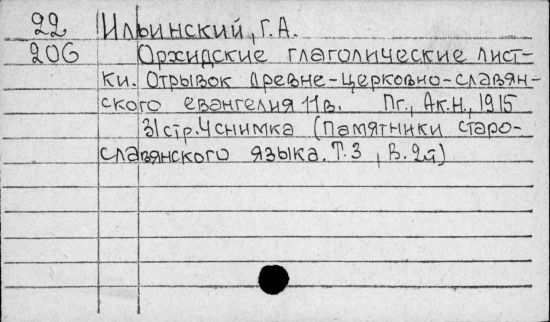 22 Ильинский, Г.А.
206 Орхидские глаголические лист-
ки. Отрывок древне-церковно-славян-
ского евангелия 11в. Пг., Ак.Н., 1915
31стр. 4снимка (Памятники старо-
славянского языка. Т.3, В.2й)